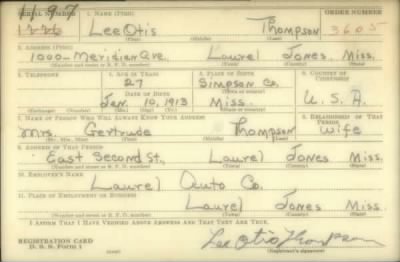 1197
SERIAL NUMBER 1. NAME (Print) ORDER NUMBER
1226 Lee Otis Thompson 3605
(First) (Middle) (Last)
2. ADDRESS (Print)
1000 - Meridian Ave. Laurel Jones Miss.
(Number and street or R. F. D. number) (Town) (County) (State)
3. TELEPHONE 4. AGE IN YEARS 5. PLACE OF BIRTH 6. COUNTRY OF CITIZENSHIP
27 Simpson Co.
DATE OF BIRTH (Town or county)
Jan. 10, 1913 Miss. U. S. A.
(Exchange) (Number) (Mo.) (Day) (Yr.) (State or country)
7. NAME OF PERSON WHO WILL ALWAYS KNOW YOUR ADDRESS 8. RELATIONSHIP OF THAT PERSON
Mrs. Gertrude Thompson Wife
(Mr., Mrs., Miss) (First) (Middle) (Last)
9. ADDRESS OF THAT PERSON
East Second St., Laurel Jones Miss.
(Number and street or R. F. D. number) (Town) (County) (State)
10. EMPLOYER'S NAME
Laurel Auto Co.
11. PLACE OF EMPLOYMENT OR BUSINESS
Laurel Jones Miss.
(Number and street or R. F. D. number) (Town) (County) (State)
I AFFIRM THAT I HAVE VERIFIED ABOVE ANSWERS AND THAT THEY ARE TRUE.
REGISTRATION CARD
D. S. S. Form 1 Lee Otis Thompson
(Registrant's signature)